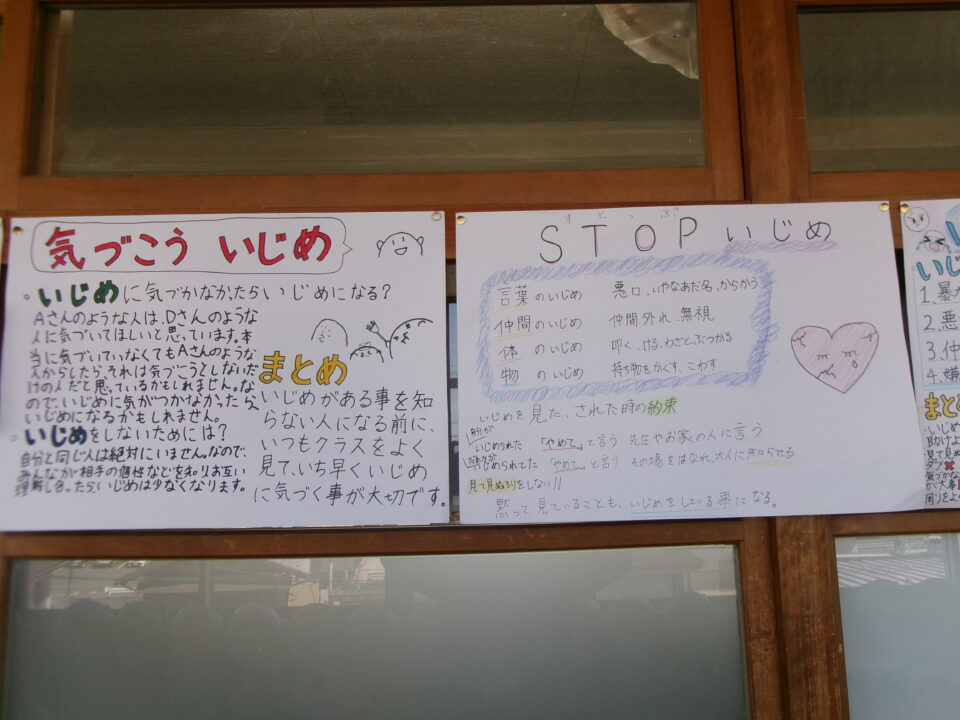 気づこう いじめ
・いじめに気づかなかったらいじめになる?
Aさんのような人は、Dさんのような
人に気づいてほしいと思っています。本
当に気づいていなくてもAさんのような
人からしたら、それは気づこうとしないだ
けの人だと思っているかもしれません。な
ので、いじめに気がつかなかったら、
いじめになるかもしれません。
・いじめをしないためには?
自分と同じ人は絶対にいません。なので、
みんなが相手の個性などを知りお互い
理解し合ったらいじめは少なくなります。
まとめ
いじめがある事を知
らない人になる前に、
いつもクラスをよく
見て、いち早くいじめ
に気づく事が大切です。
すとっぷ
STOPいじめ
言葉のいじめ 悪口、いやなあだ名、からかう
仲間のいじめ 仲間外れ、無視
体のいじめ 叩く、ける、わざとぶつかる
物のいじめ 持ち物をかくす、こわす
いじめを見た、された時の約束
自分が
いじめられた 「やめて」と言う 先生やお家の人に言う
だれかが
いじめられてた 「やめて」と言う その場をはなれ大人に知らせる
見て見ぬふりをしない!!
黙って見ていることも、いじめをしている事になる。
いじ
1.暴
2.悪
3.仲
4.嫌
まと
いじめ
助けよ
見て見
ダメ×
気づかな
が大事
周りをよ